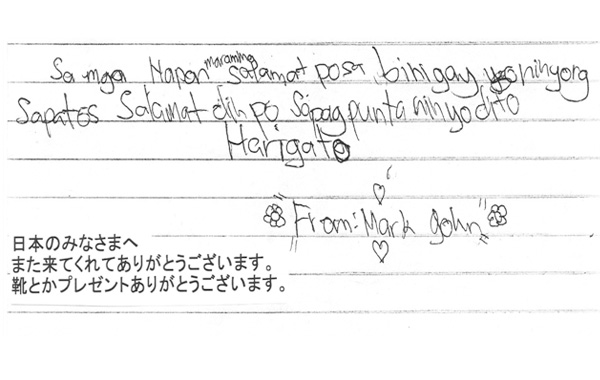 Sa mga Hapon maraming salamat posa binigay ninyong
Sapatos Salamat din po sa pag punta ninyo dito
Harigato
From: Mark John
日本のみなさまへ
また来てくれてありがとうございます。
靴とかプレゼントありがとうございます。